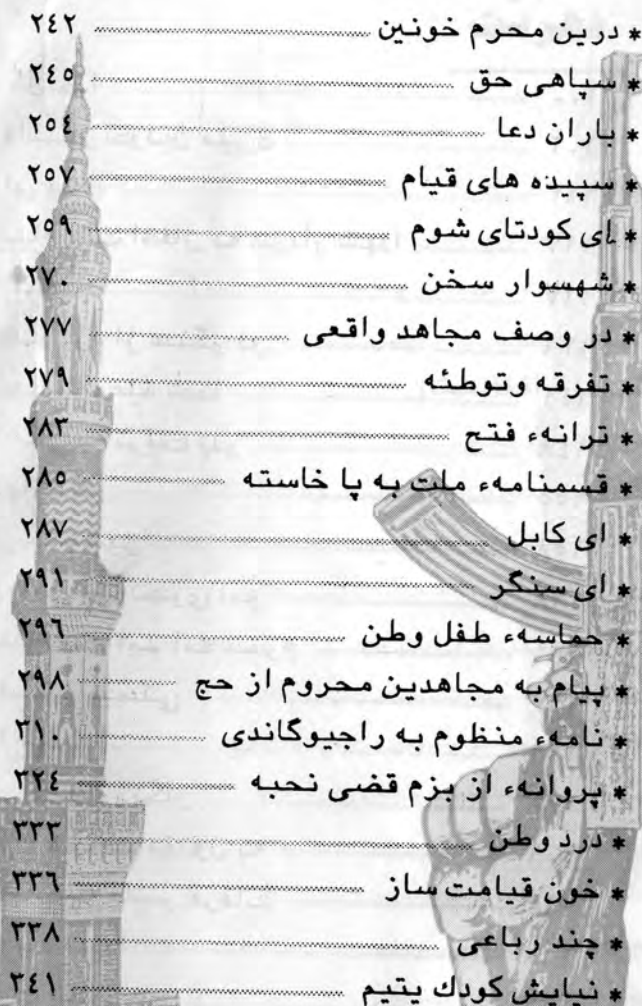 * درین محرم خونین ۲٤۲
* سپاهی حق ۲٤٥
* باران دعا ۲٥٤
* سپیده های قیام ۲٥۷
* ای کودتای شوم ۲٥۹
* شهسوار سخن ۲۷۰
* در وصف مجاهد واقعی ۲۷۷
* تفرقه وتوطئه ۲۷۹
* ترانهء فتح ۲۸۳
* قسمنامهء ملت به پا خاسته ۲۸٥
* ای کابل ۲۸۷
* ای سنگر ۲۹۱
* حماسهء طفل وطن ۲۹٦
* پیام به مجاهدین محروم از حج ۲۹۸
* نامهء منظوم به راجیوگاندی ۳۱۰
* پروانهء از بزم قضی نحبه ۳۲٤
* درد وطن ۳۳۳
* خون قیامت ساز ۳۳٦
* چند رباعی ۳۳۸
* نیایش کودك یتیم ۳٤۱